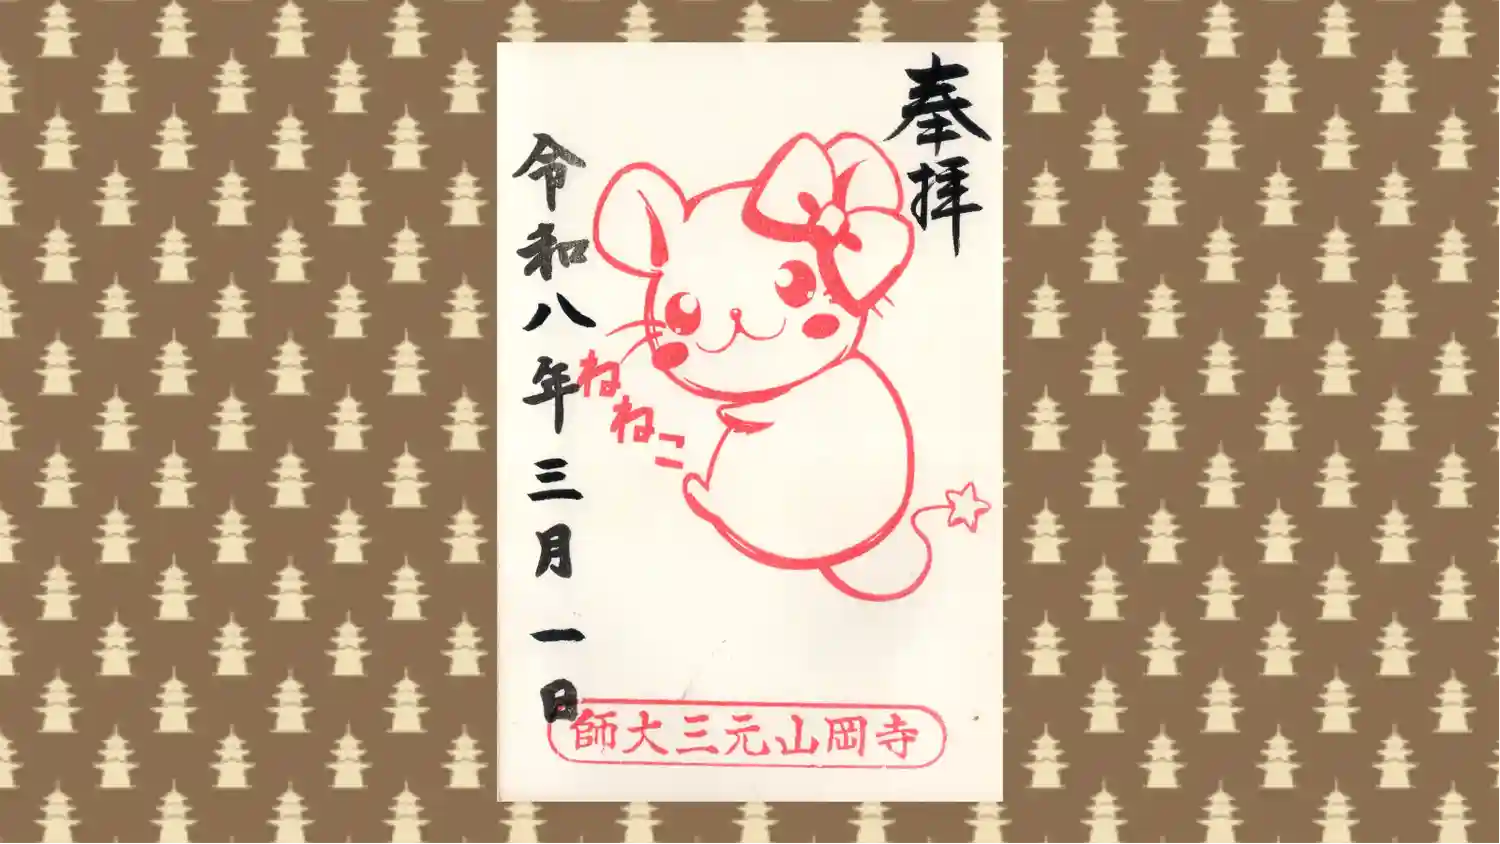 奉拝
ねねこ
令和八年三月一日
寺岡山元三大師